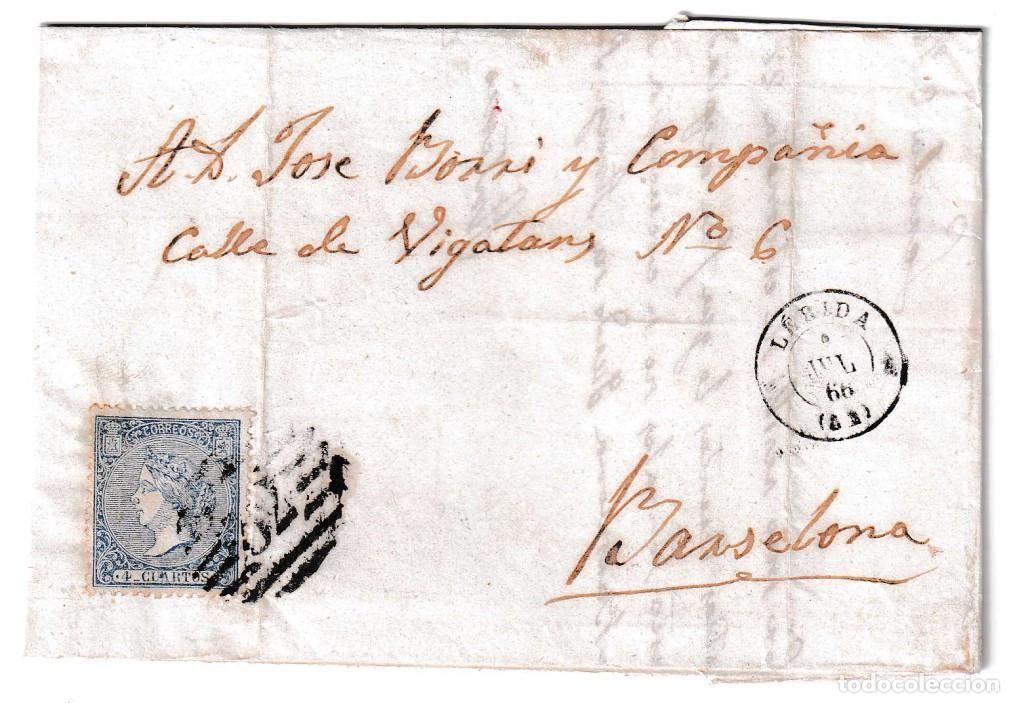 A. D. Jose Borri y Compañia
Calle de Vigatans Nº 6
LÉRIDA
6
JUL
66
CORREOS
4 CUARTOS
Barselona
todocoleccion